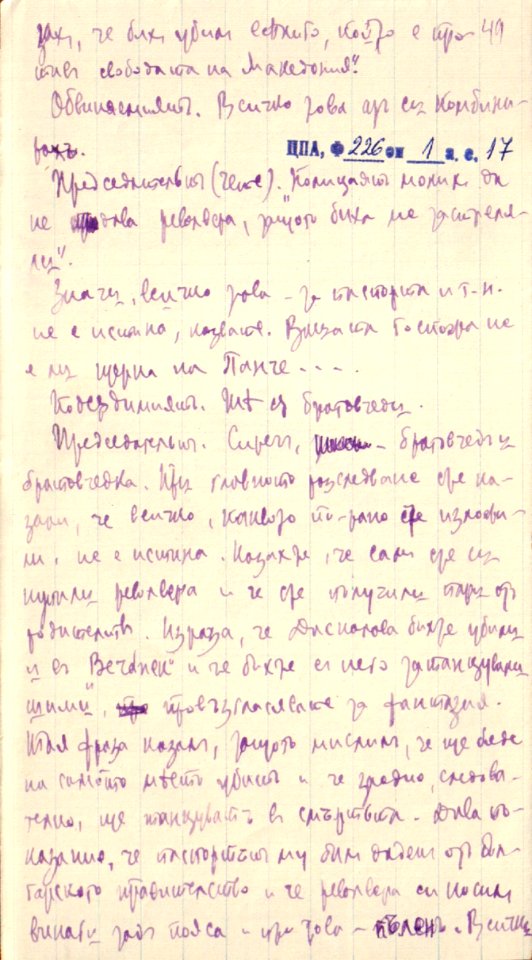 заха, че бихъ убилъ всѣкиго, който е про- 49
тивъ свободата на Македония".
Обвиняемиятъ. Всичко това азъ си комбини-
рахъ.
ЦПА, Ф 226 оп 1 а. е. 17
Председательтъ (чете). Полицаятъ молилъ да
не продава револвера, защото биха ме застреля-
ли".
Значи, всичко това – за паспорта и т.н.
не е истина, казвате. Вашата Господжа не
е ли щерка на Панче - - - -
Подсѫдимиятъ. Тѣ сѫ братовчеди.
Председательтъ. Сиречъ, – братовчедъ и
братовчедка. При главното разследване сте ка-
зали, че всичко, каквото по-рано сте изложи-
ли, не е истина. Казахте, че сами сте си
купили револвера и че сте получили пари отъ
родителитѣ. Израза, че Даскалова бихте убили
и въ "Вечность" и че бихте съ него затанцували
"шими", провъзгласявате за фантазия.
Тая фраза казалъ, защото мислилъ, че ще бѫде
на самото мѣсто убитъ и че заедно, следова-
телно, ще танцуватъ въ смъртьта. Дава по-
казание, че паспортътъ му билъ даденъ отъ бъл-
гарското правителство и че револвера си носилъ
винаги задъ пояса и при това – пъленъ. Всички